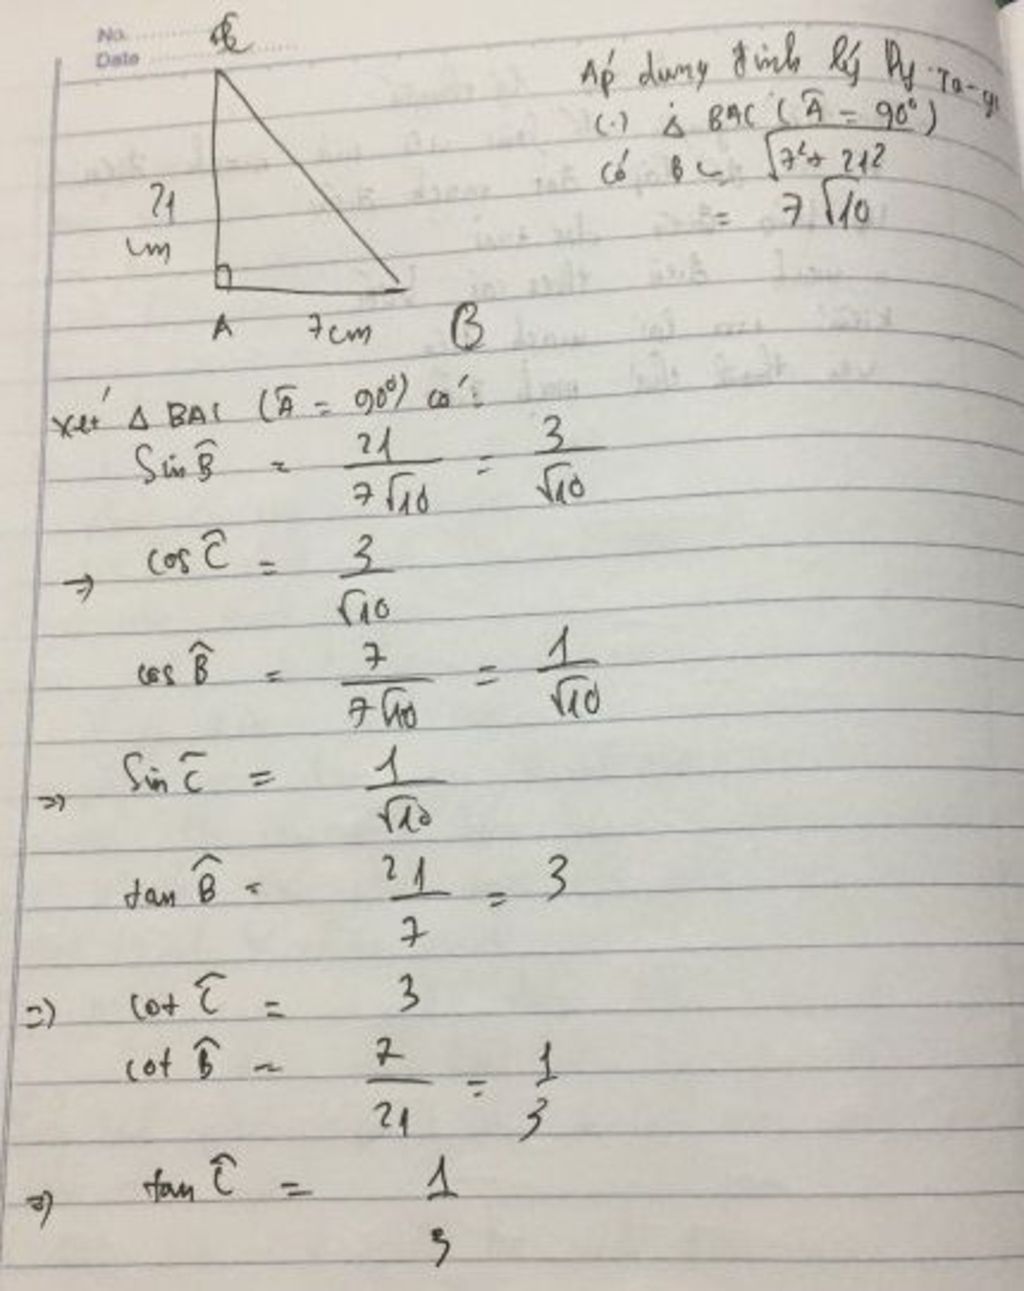 No.
Date
C
21
cm
A 7cm B
Áp dụng định lý Py-Ta-go
(.) Δ BAC (Â = 90°)
có BC = √7²+21²
= 7√10
xét Δ BAC (Â = 90°) có:
Sin B̂ = 21/7√10 = 3/√10
⇒ cos Ĉ = 3/√10
cos B̂ = 7/7√10 = 1/√10
⇒ Sin Ĉ = 1/√10
tan B̂ = 21/7 = 3
⇒ cot Ĉ = 3
cot B̂ = 7/21 = 1/3
⇒ tan Ĉ = 1/3